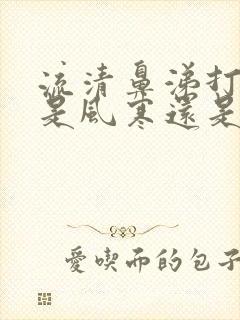 流清鼻涕打
是風寒還是
愛喫而的包子